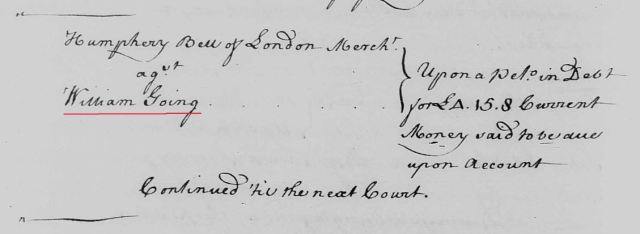 Humphery Bell of London Mercht.
agst
William Going
Upon a Peto. in Debt
for £4.15.8 Current
Money said to be due
upon Account
Continued 'til the next Court.